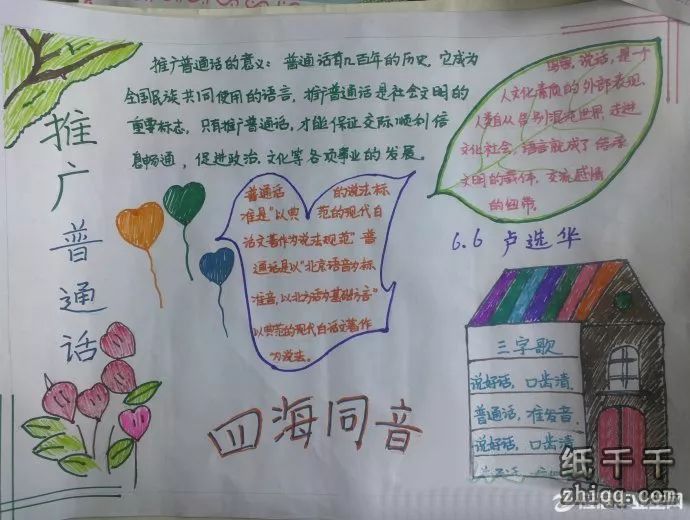 推广普通话
推广普通话的意义：普通话有几百年的历史，它成为
全国民族共同使用的语言，推广普通话是社会文明的
重要标志，只有推广普通话，才能保证交际顺利信
息畅通，促进政治、文化等各项事业的发展。
说话，是一个
人文化素质的外部表现，
人类自从告别混沌世界，走进
文化社会，语言就成了传承
文明的载体，交流感情
的纽带。
普通话 的说法标
准是“以典 范的现代白
话文著作为说法规范”普
通话是以“北京语音为标
准音，以北方话为基础方言”
以典范的现代白话文著作
为说法。
6.6 卢选华
三字歌
说好话，口齿清，
普通话，准发音，
说好话，口齿清
四海同音
纸千千
zhiqq.com